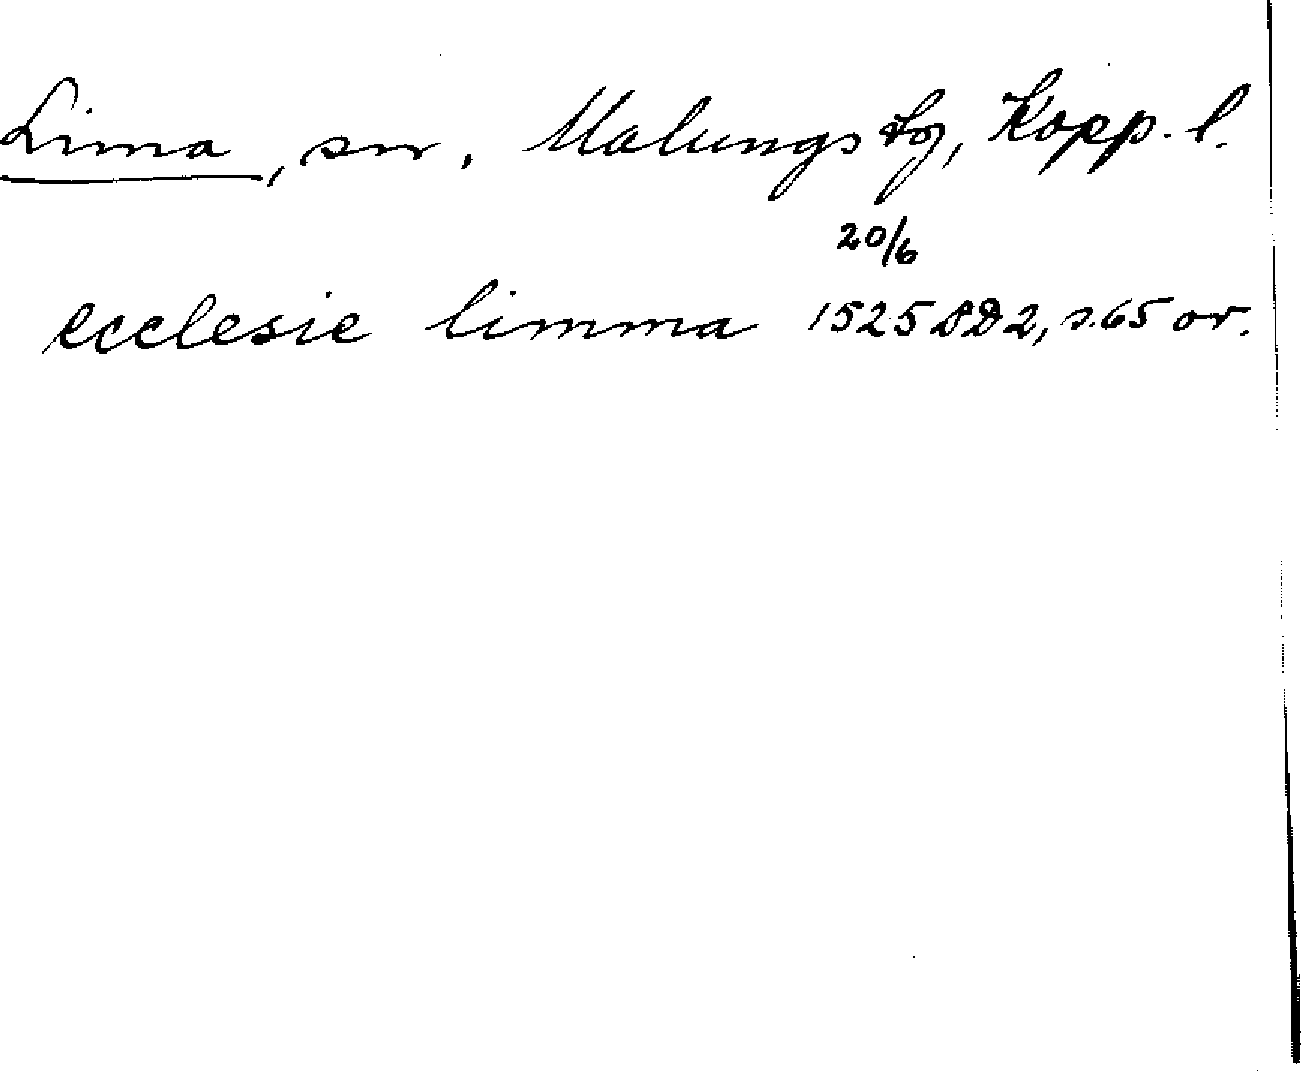 Lima, sn, Malungs tg, Kopp. l.
20/6
ecclesie limma 1525 DD2, s. 65 or.